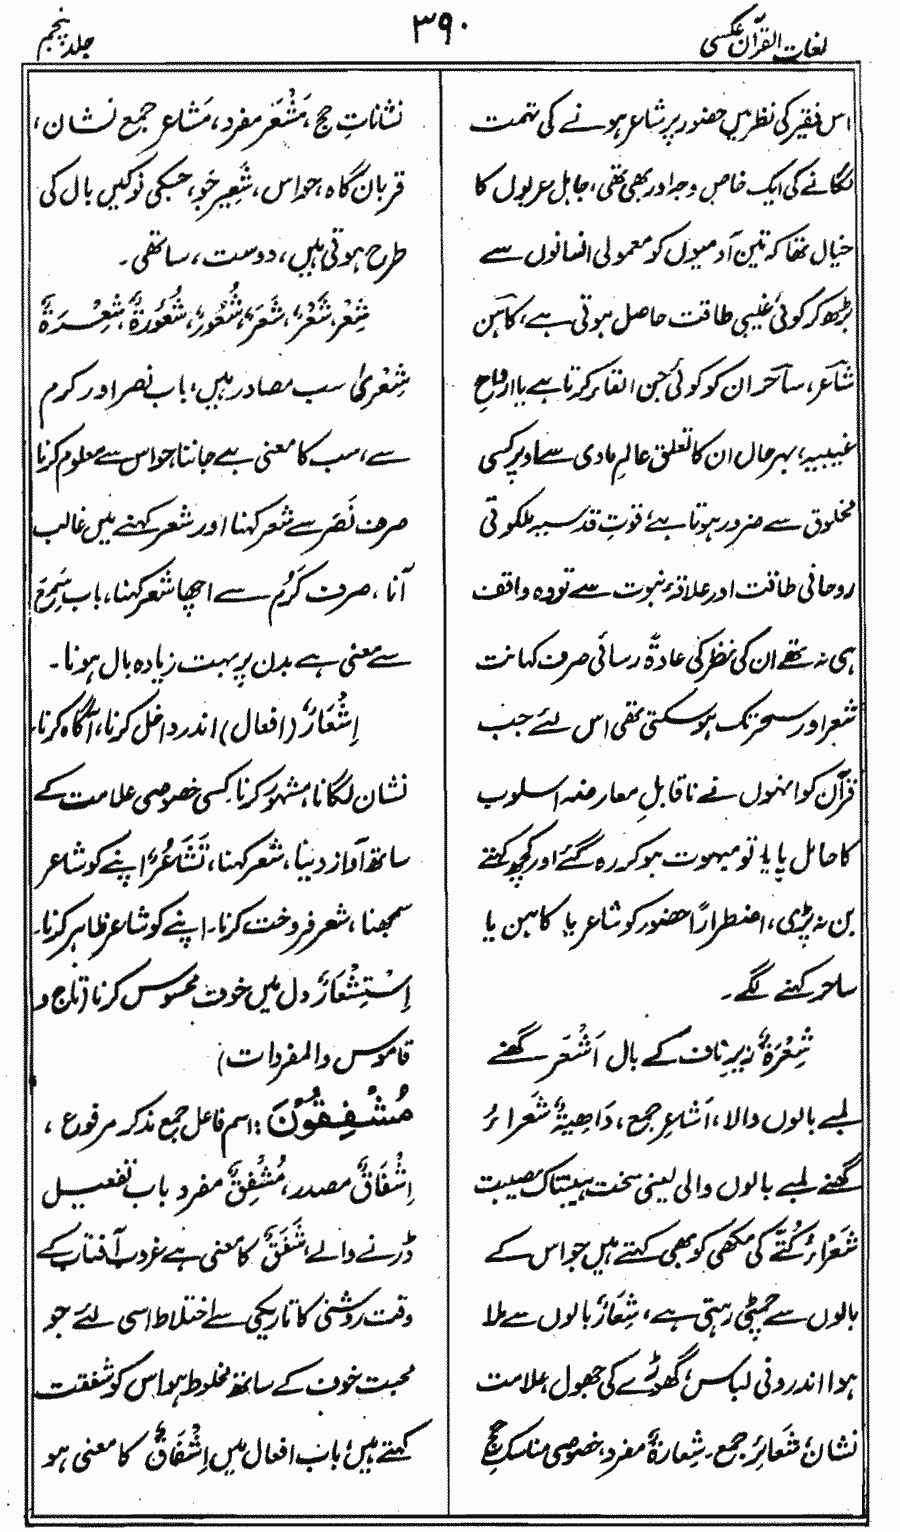 لغات القرآن عکسی
۳۹۰
جلد پنجم
اس فقیر کی نظر میں حضور پر شاعر ہونے کی تہمت
لگانے کی ایک خاص وجہ اور بھی تھی، جاہل عربوں کا
خیال تھا کہ تین آدمیوں کو معمولی انسانوں سے
بڑھ کر کوئی غیبی طاقت حاصل ہوتی ہے، کاہن
شاعر، ساحر ان کو کوئی جن القاء کرتا ہے یا ارواح
غیبیہ، بہر حال ان کا تعلق عالم مادی سے اوپر کسی
مخلوق سے ضرور ہوتا ہے، قوتِ قدسیہ ملکوتی
روحانی طاقت اور علاقۂ نبوت سے تو وہ واقف
ہی نہ تھے ان کی نظر کی عادۃً رسائی صرف کہانت
شعر اور سحر تک ہو سکتی تھی اس لئے جب
قرآن کو انہوں نے ناقابلِ معارضہ اسلوب
کا حامل پایا تو مبہوت ہو کر رہ گئے اور کچھ کہتے
بن نہ پڑی، اضطراراً حضور کو شاعر یا کاہن یا
ساحر کہنے لگے۔
شِعْرَۃٌ زیر ناف کے بال اَشْعَر گھنے
لمبے بالوں والا، اَشاعِر جمع، دَاھِیَۃٌ شَعراءُ
گھنے لمبے بالوں والی یعنی سخت ہیبتناک مصیبت
شَعْرَاءُ کُتّے کی مکھی کو بھی کہتے ہیں جو اس کے
بالوں سے چمٹی رہتی ہے، شِعَارٌ بالوں سے ملا
ہوا اندرونی لباس، گھوڑے کی جھول، علامت
نشان، شَعَائِرُ جمع۔ شِعارۃٌ مفرد، خصوصی مناسکِ حج
نشاناتِ حج، مَشْعَر مفرد، مَشَاعر جمع نشان،
قربان گاہ، حواس، شَعِیر جَو، جسکی نوکیں بال کی
طرح ہوتی ہیں، دوست، ساتھی۔
شِعْر، شَعْرٌ، شَعَرٌ، شُعُورٌ، شُعُورَۃٌ، شِعْرَۃٌ
شِعْریٰ سب مصادر ہیں، باب نصر اور کرم
سے، سب کا معنی ہے جاننا، حواس سے معلوم کرنا
صرف نَصَرَ سے شعر کہنا اور شعر کہنے میں غالب
آنا، صرف کَرُم سے اچھا شعر کہنا، باب سَمِعَ
سے معنی ہے بدن پر بہت زیادہ بال ہونا۔
اِشْعَارٌ (افعال) اندر داخل کرنا، آگاہ کرنا،
نشان لگانا، مشہور کرنا، کسی خصوصی علامت کے
ساتھ آواز دینا، شعر کہنا، تَشَاعُرٌ اپنے کو شاعر
سمجھنا، شعر فروخت کرنا۔ اپنے کو شاعر ظاہر کرنا۔
اِسْتِشْعَارٌ دل میں خوف محسوس کرنا (تاج و
قاموس والمفردات)
مُشْفِقُوْنَ: اسم فاعل جمع مذکر مرفوع،
اِشْفَاقٌ مصدر، مُشْفِقٌ مفرد باب تفعیل
ڈرنے والے، شَفَقٌ کا معنی ہے غروب آفتاب کے
وقت روشنی کا تاریکی سے اختلاط اسی لئے جو
محبت خوف کے ساتھ مخلوط ہو اس کو شفقت
کہتے ہیں، باب افعال میں اِشْفَاقٌ کا معنی ہو